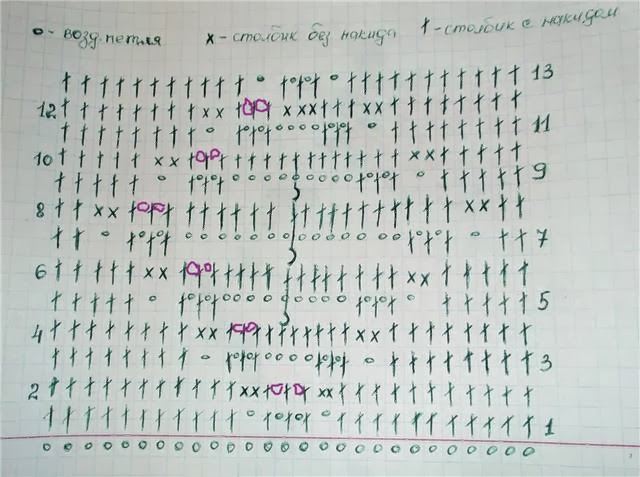 о - возд. петля х - столбик без накида † - столбик с накидом
13
12
11
10
9
8
7
6
5
4
3
2
1